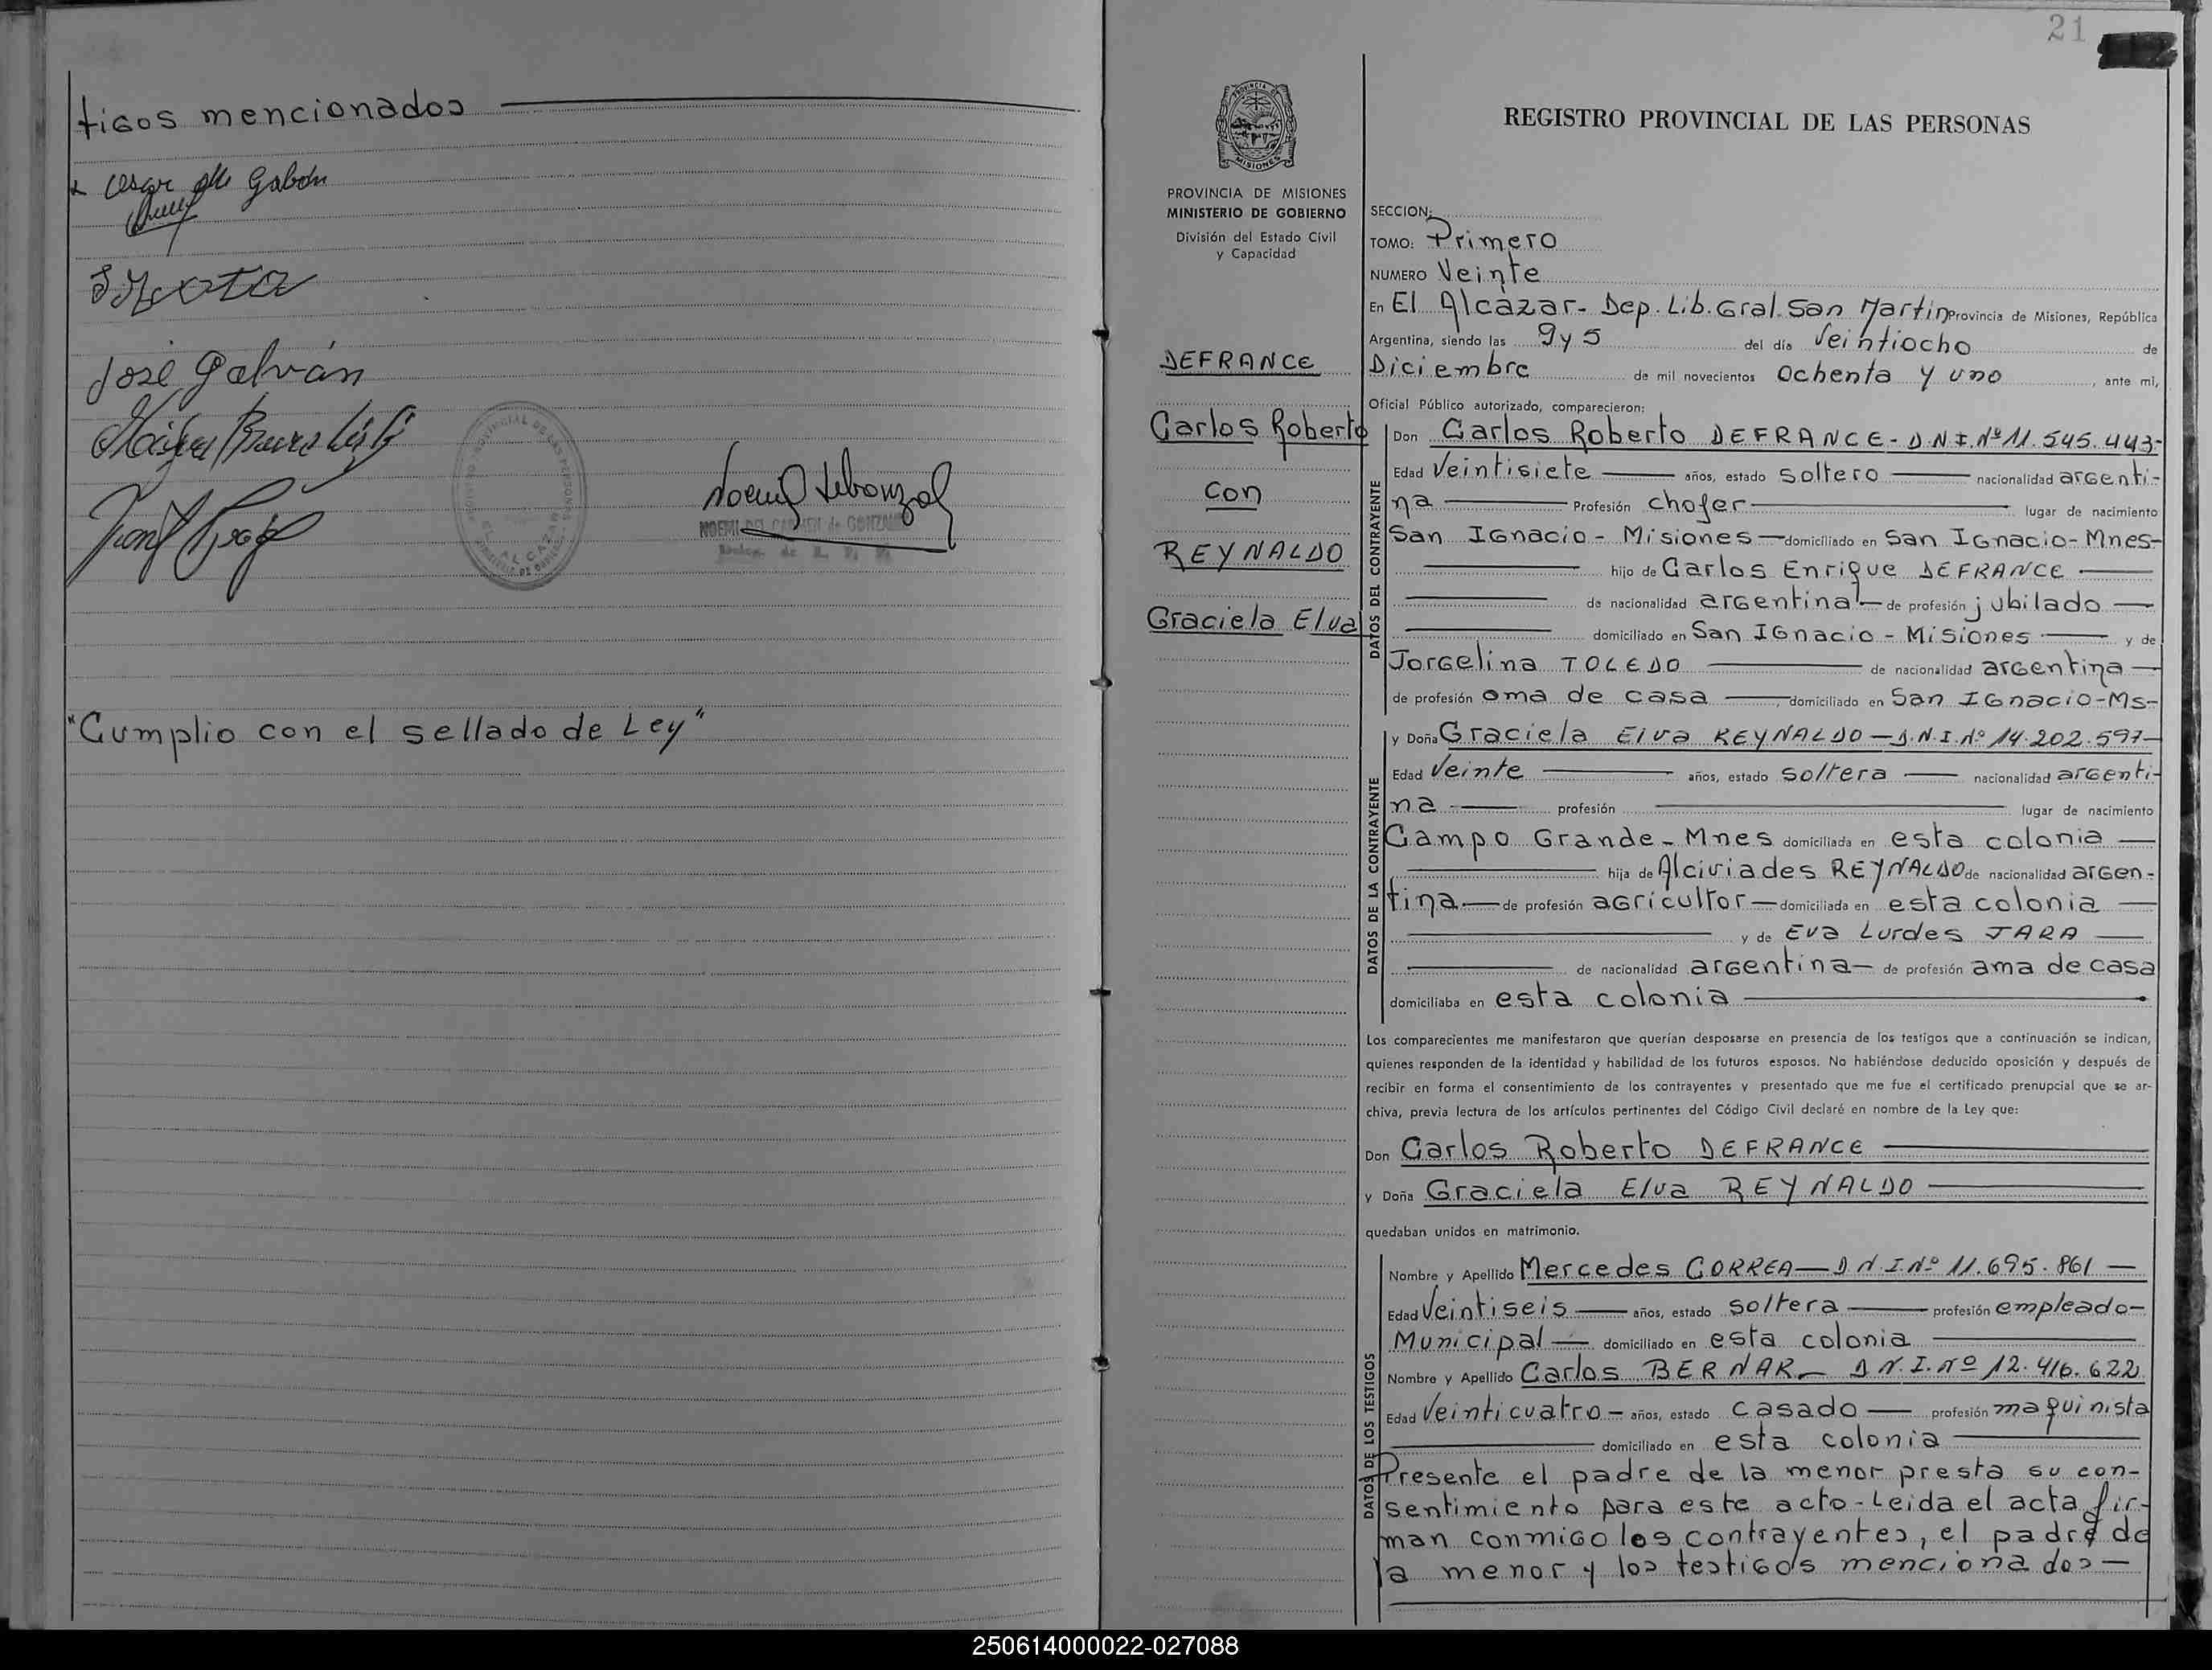 tigos mencionados
José Galván
NOEMI DEL CARMEN de GONZALEZ
"Cumplio con el sellado de Ley"
21
PROVINCIA DE MISIONES
MINISTERIO DE GOBIERNO
División del Estado Civil
y Capacidad
DEFRANCE
Carlos Roberto
con
REYNALDO
Graciela Elva
REGISTRO PROVINCIAL DE LAS PERSONAS
SECCION:
TOMO: Primero
NUMERO Veinte
En El Alcazar - Dep. Lib. Gral. San Martin Provincia de Misiones, República
Argentina, siendo las 9 y 5 del día Veintiocho de
Diciembre de mil novecientos ochenta y uno, ante mi,
Oficial Público autorizado, comparecieron:
DATOS DEL CONTRAYENTE
Don Carlos Roberto DEFRANCE - D.N.I. Nº 11.545.443-
Edad Veintisiete años, estado soltero nacionalidad argenti-
na Profesión chofer lugar de nacimiento
San Ignacio - Misiones — domiciliado en San Ignacio - Mnes-
hijo de Carlos Enrique DEFRANCE
de nacionalidad argentina — de profesión jubilado
domiciliado en San Ignacio - Misiones y de
Jorgelina TOLEDO de nacionalidad argentina
de profesión ama de casa, domiciliado en San Ignacio-Ms-
DATOS DE LA CONTRAYENTE
y Doña Graciela Elva REYNALDO — D.N.I. Nº 14.202.597-
Edad Veinte años, estado soltera nacionalidad argenti-
na profesión lugar de nacimiento
Campo Grande - Mnes domiciliada en esta colonia
hija de Alciviades REYNALDO de nacionalidad argen-
tina — de profesión agricultor — domiciliada en esta colonia
y de Eva Lurdes JARA
de nacionalidad argentina — de profesión ama de casa
domiciliaba en esta colonia
Los comparecientes me manifestaron que querían desposarse en presencia de los testigos que a continuación se indican,
quienes responden de la identidad y habilidad de los futuros esposos. No habiéndose deducido oposición y después de
recibir en forma el consentimiento de los contrayentes y presentado que me fue el certificado prenupcial que se ar-
chiva, previa lectura de los artículos pertinentes del Código Civil declaré en nombre de la Ley que:
Don Carlos Roberto DEFRANCE
y Doña Graciela Elva REYNALDO
quedaban unidos en matrimonio.
DATOS DE LOS TESTIGOS
Nombre y Apellido Mercedes CORREA — D.N.I. Nº 11.695.861
Edad Veintiseis años, estado soltera profesión empleado-
Municipal domiciliado en esta colonia
Nombre y Apellido Carlos BERNAR — D.N.I. Nº 12.416.622
Edad Veinticuatro — años, estado casado — profesión maquinista
domiciliado en esta colonia
Presente el padre de la menor presta su con-
sentimiento para este acto - Leida el acta fir-
man conmigo los contrayentes, el padre de
la menor y los testigos mencionados —
250614000022-027088